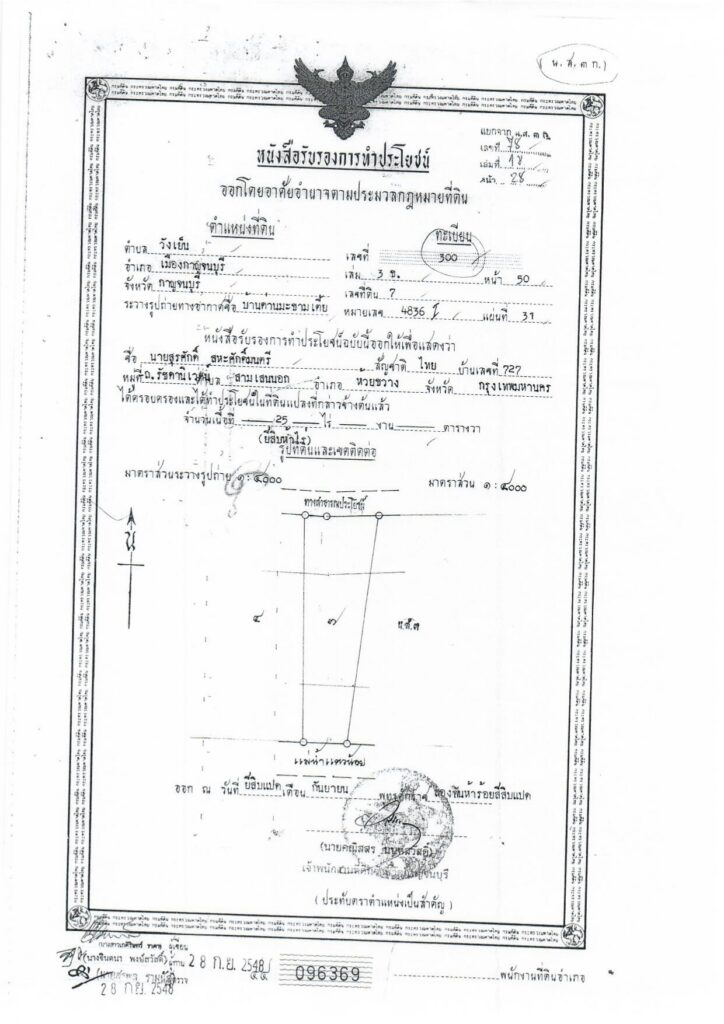 (น.ส.๓ ก.)
แยกจาก น.ส.๓ ก.
เลขที่ 78
เล่มที่ 18
หน้า 28
หนังสือรับรองการทำประโยชน์
ออกโดยอาศัยอำนาจตามประมวลกฎหมายที่ดิน
ตำแหน่งที่ดิน ทะเบียน
ตำบล วังเย็น เลขที่ 300
อำเภอ เมืองกาญจนบุรี เล่ม 3 ข. หน้า 50
จังหวัด กาญจนบุรี เลขที่ดิน 7
ระวางรูปถ่ายทางอากาศชื่อ บ้านด่านมะขามเตี้ย หมายเลข 4836 แผ่นที่ 31
หนังสือรับรองการทำประโยชน์ฉบับนี้ออกให้เพื่อแสดงว่า
ชื่อ นายสุรศักดิ์ สหะศักดิ์มนตรี สัญชาติ ไทย บ้านเลขที่ 727
หมู่ที่ ถ.รัชดานิเวศน์ ตำบล สามเสนนอก อำเภอ ห้วยขวาง จังหวัด กรุงเทพมหานคร
ได้ครอบครองและได้ทำประโยชน์ในที่ดินแปลงที่กล่าวข้างต้นแล้ว
จำนวนเนื้อที่ 25 ไร่ งาน ตารางวา
(ยี่สิบห้าไร่)
รูปที่ดินและเขตติดต่อ
มาตราส่วนระวางรูปถ่าย ๑:๔๐๐๐ มาตราส่วน ๑:๔๐๐๐
ทางสาธารณประโยชน์
น
๔ ๗ น.ส.๓
แม่น้ำแควน้อย
ออก ณ วันที่ ยี่สิบแปด เดือน กันยายน พุทธศักราช สองพันห้าร้อยสี่สิบแปด
เจ้าพนักงานที่ดิน
(ประทับตราตำแหน่งเป็นสำคัญ)
ผู้เขียน
(นางจินตนา พงษ์สวัสดิ์) ผู้ทาน 28 ก.ย. 2548
28 ก.ย. 2548
096369
พนักงานที่ดินอำเภอ